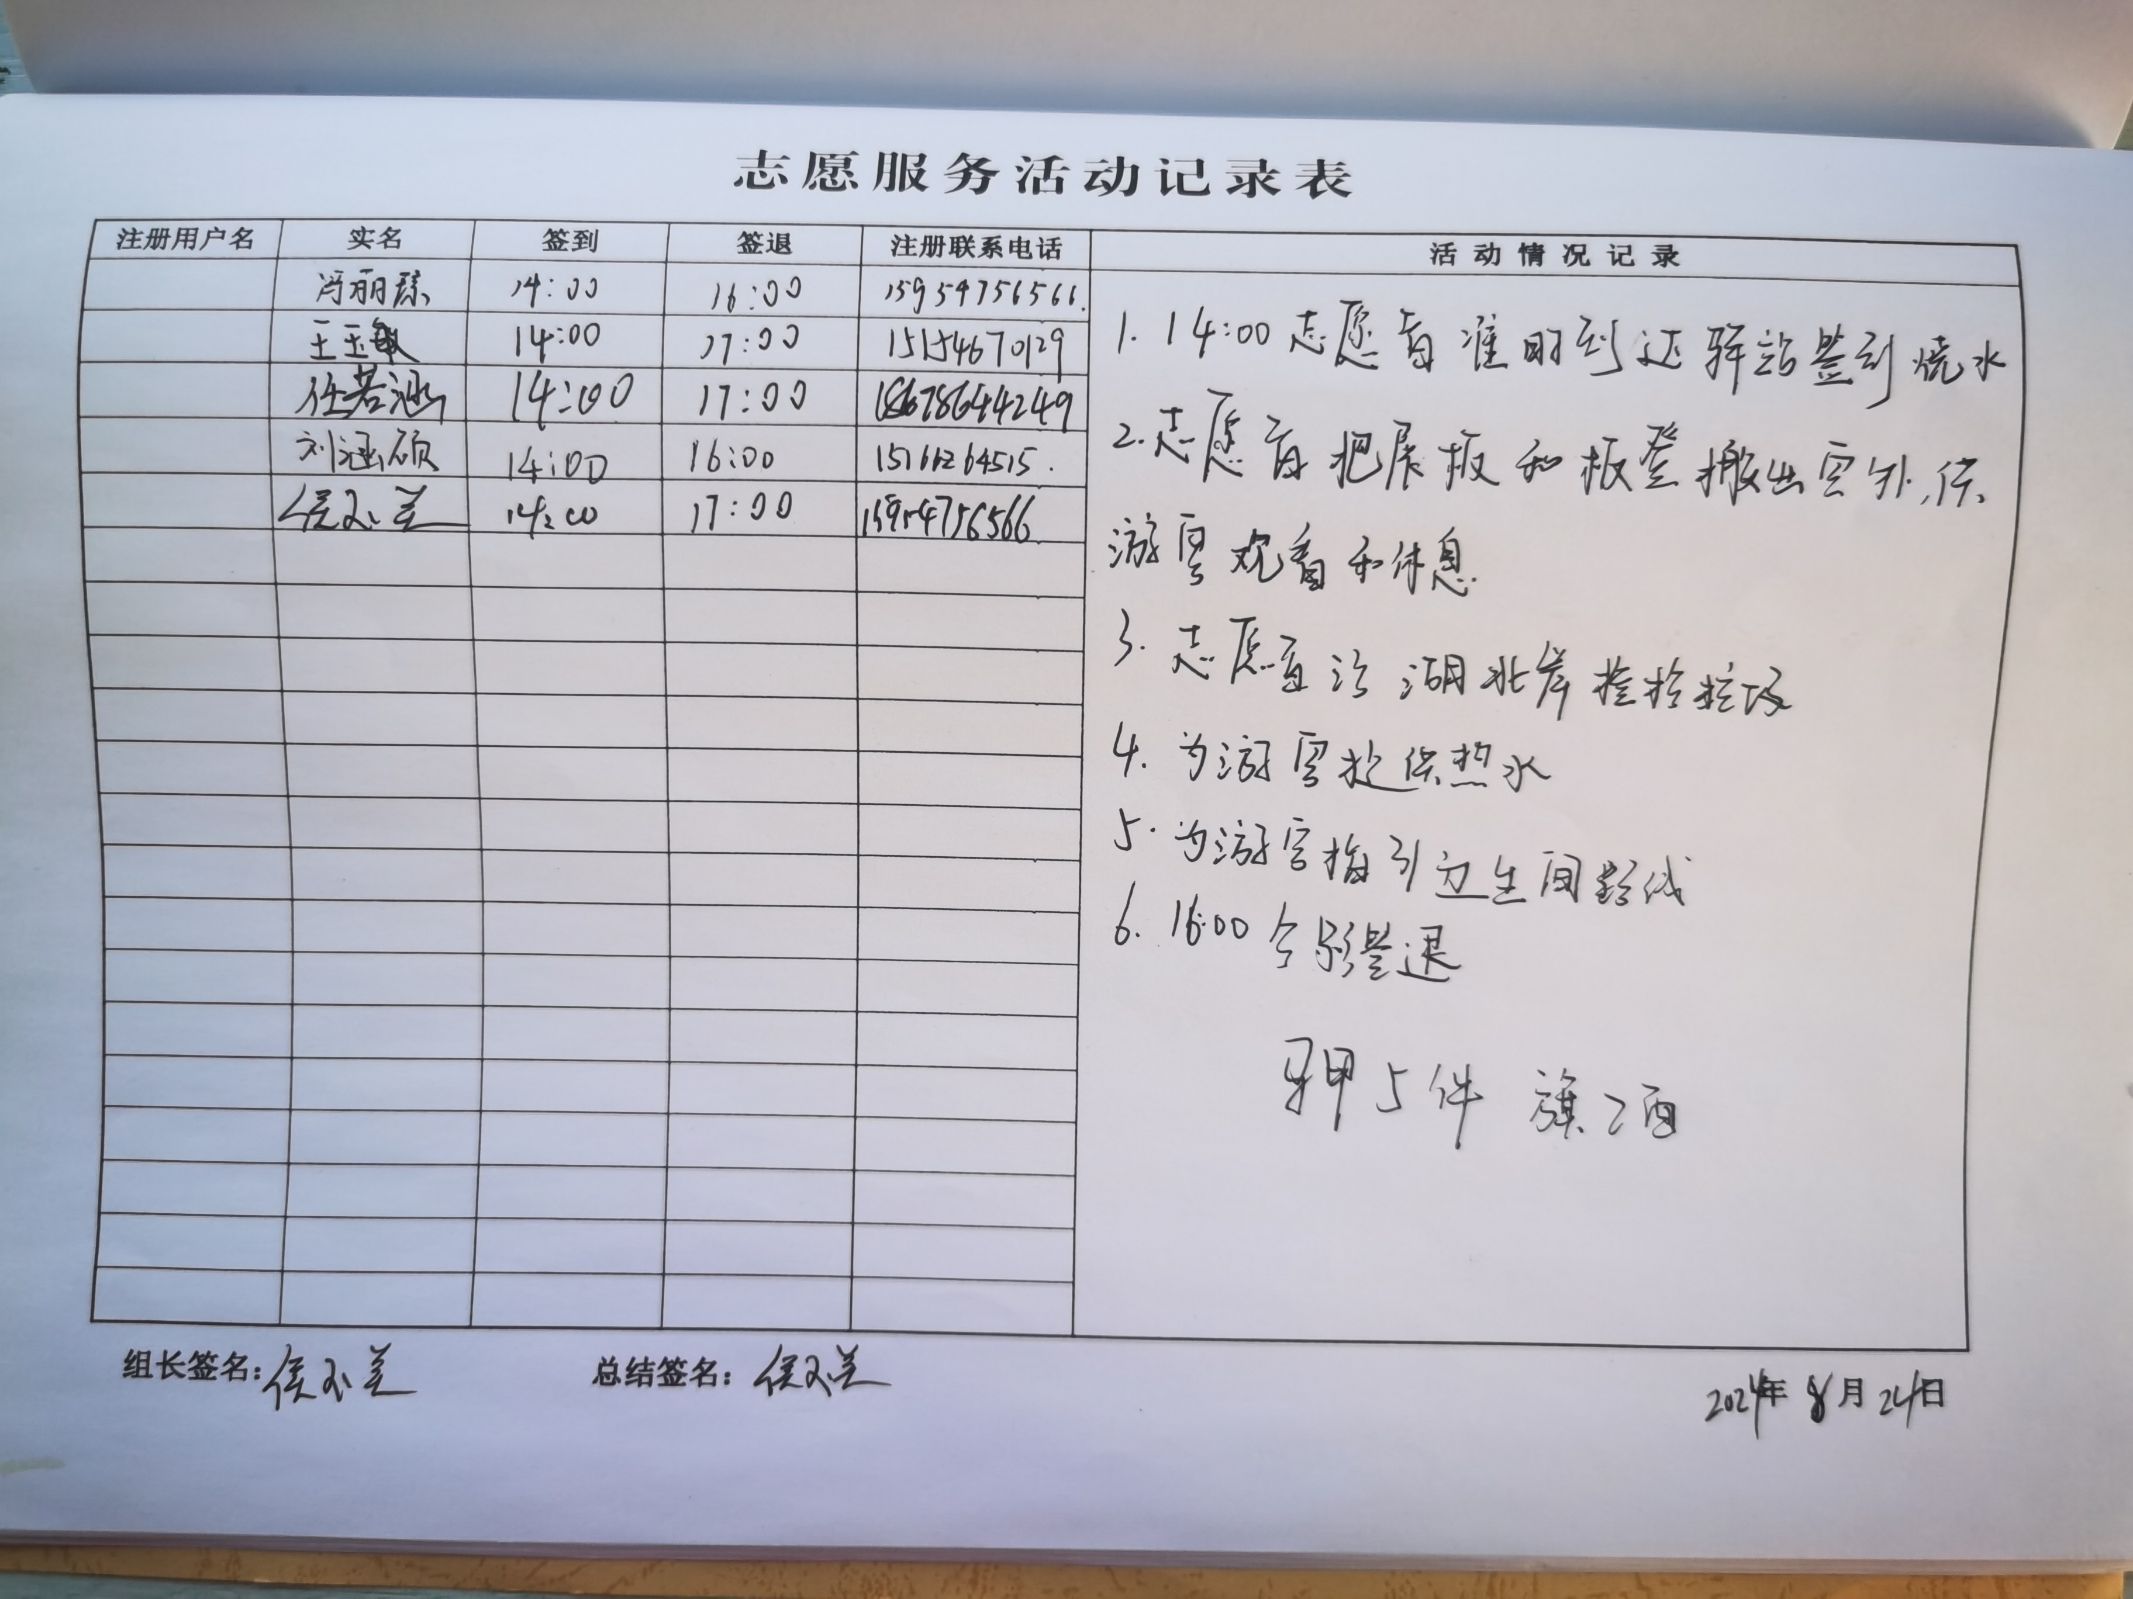 志愿服务活动记录表
注册用户名 实名 签到 签退 注册联系电话 活动情况记录
冯丽琼 14:00 16:00 15954756566.
王玉敏 14:00 17:00 15154670129
任若涵 14:00 17:00 18678644249
刘涵硕 14:00 16:00 15166264515.
侯玉兰 14:00 17:00 15954756566
1. 14:00 志愿者准时到达驿站签到烧水
2. 志愿者把展板和板凳搬出室外,供
游客观看和休息
3. 志愿者沿湖北岸捡拾垃圾
4. 为游客提供热水
5. 为游客指引卫生间路线
6. 16:00 合影签退
马甲5件 旗2面
组长签名: 侯玉兰 总结签名: 侯玉兰
2024年 8月 24日